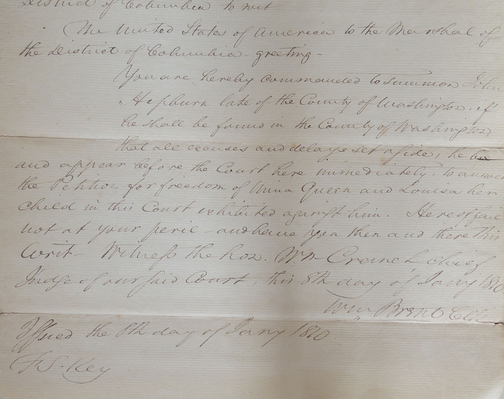 District of Columbia to wit
The United States of America to the Marshal of
the District of Columbia - greeting -
You are hereby commanded to summon John
Hepburn late of the County of Washington if
he shall be found in the County of Washington
that all excuses and delays set aside, he be
and appear before the Court here immediately to answer
the Petition for freedom of Anna Queen and Louisa her
child in this Court exhibited against him. Hereof fail
not at your peril - and have you then and there this
Writ - Witness the hon. Wm Cranch chief
Judge of our said Court, this 8th day of Jany 1810
Wm Brent Clk
Issued the 8th day of Jany 1810
F. S. Key